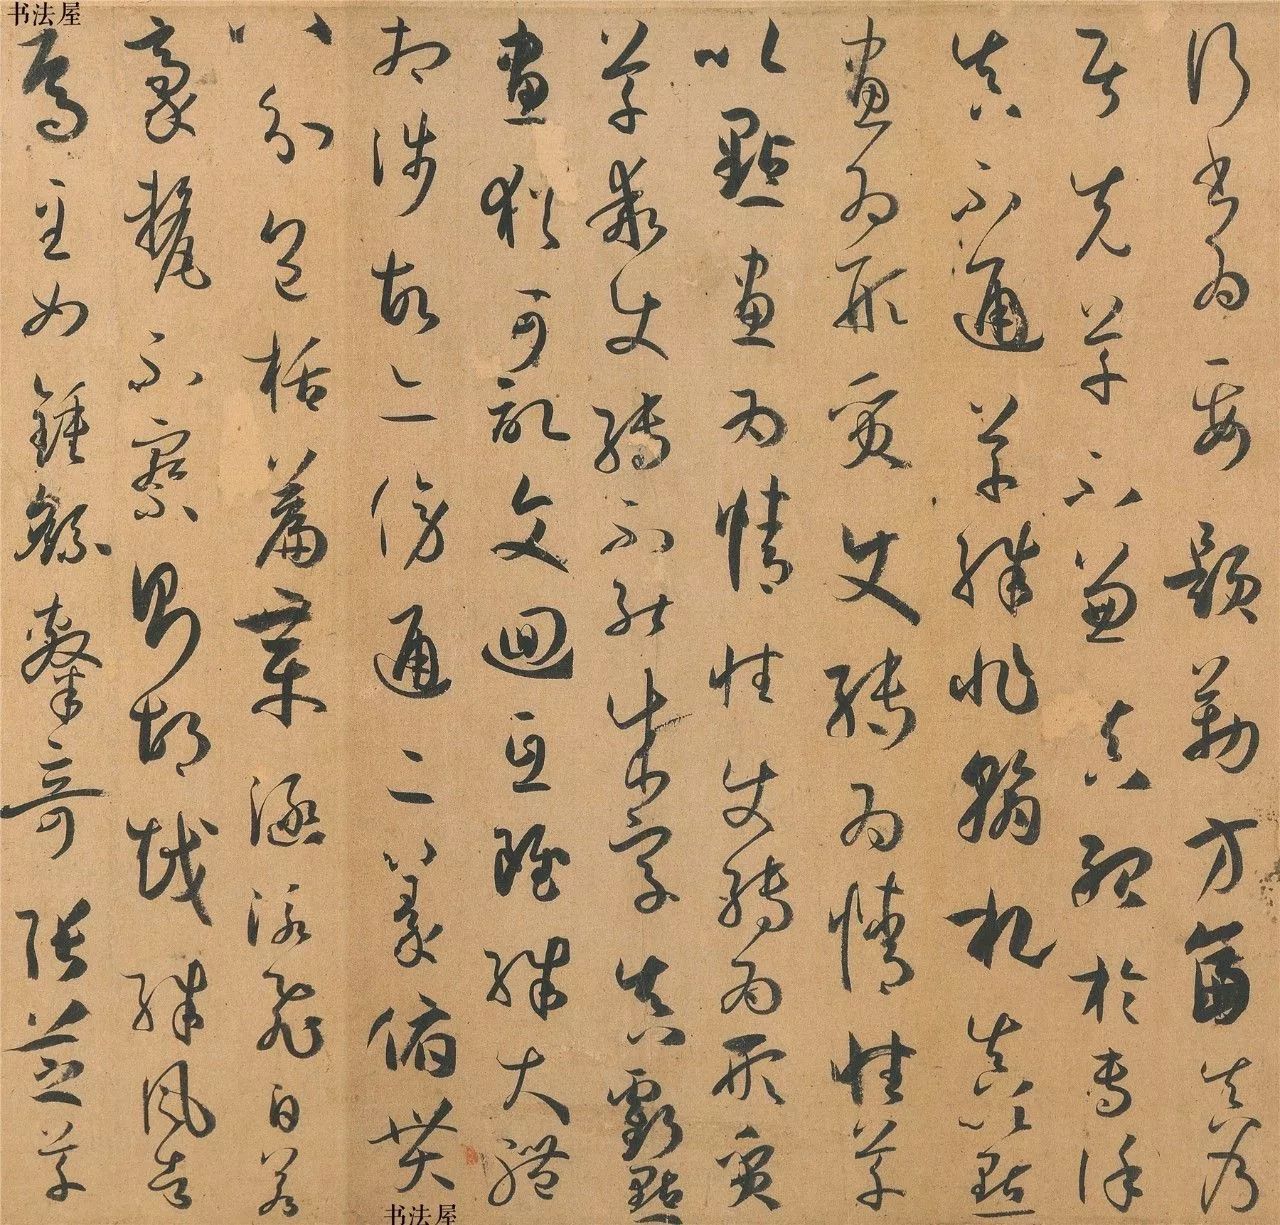 行書為要題勒方畐真乃
居先草不兼真殆於專謹
真不通草殊非翰札真以點
畫為形質使轉為情性草
以點畫為情性使轉為形質
草乖使轉不能成字真虧點
畫猶可記文迴互雖殊大體
相涉故亦傍通二篆俯貫
八分包括篇章涵泳飛白若
豪氂不察則胡越殊風者
焉至如鍾繇隸奇張芝草
书法屋
书法屋